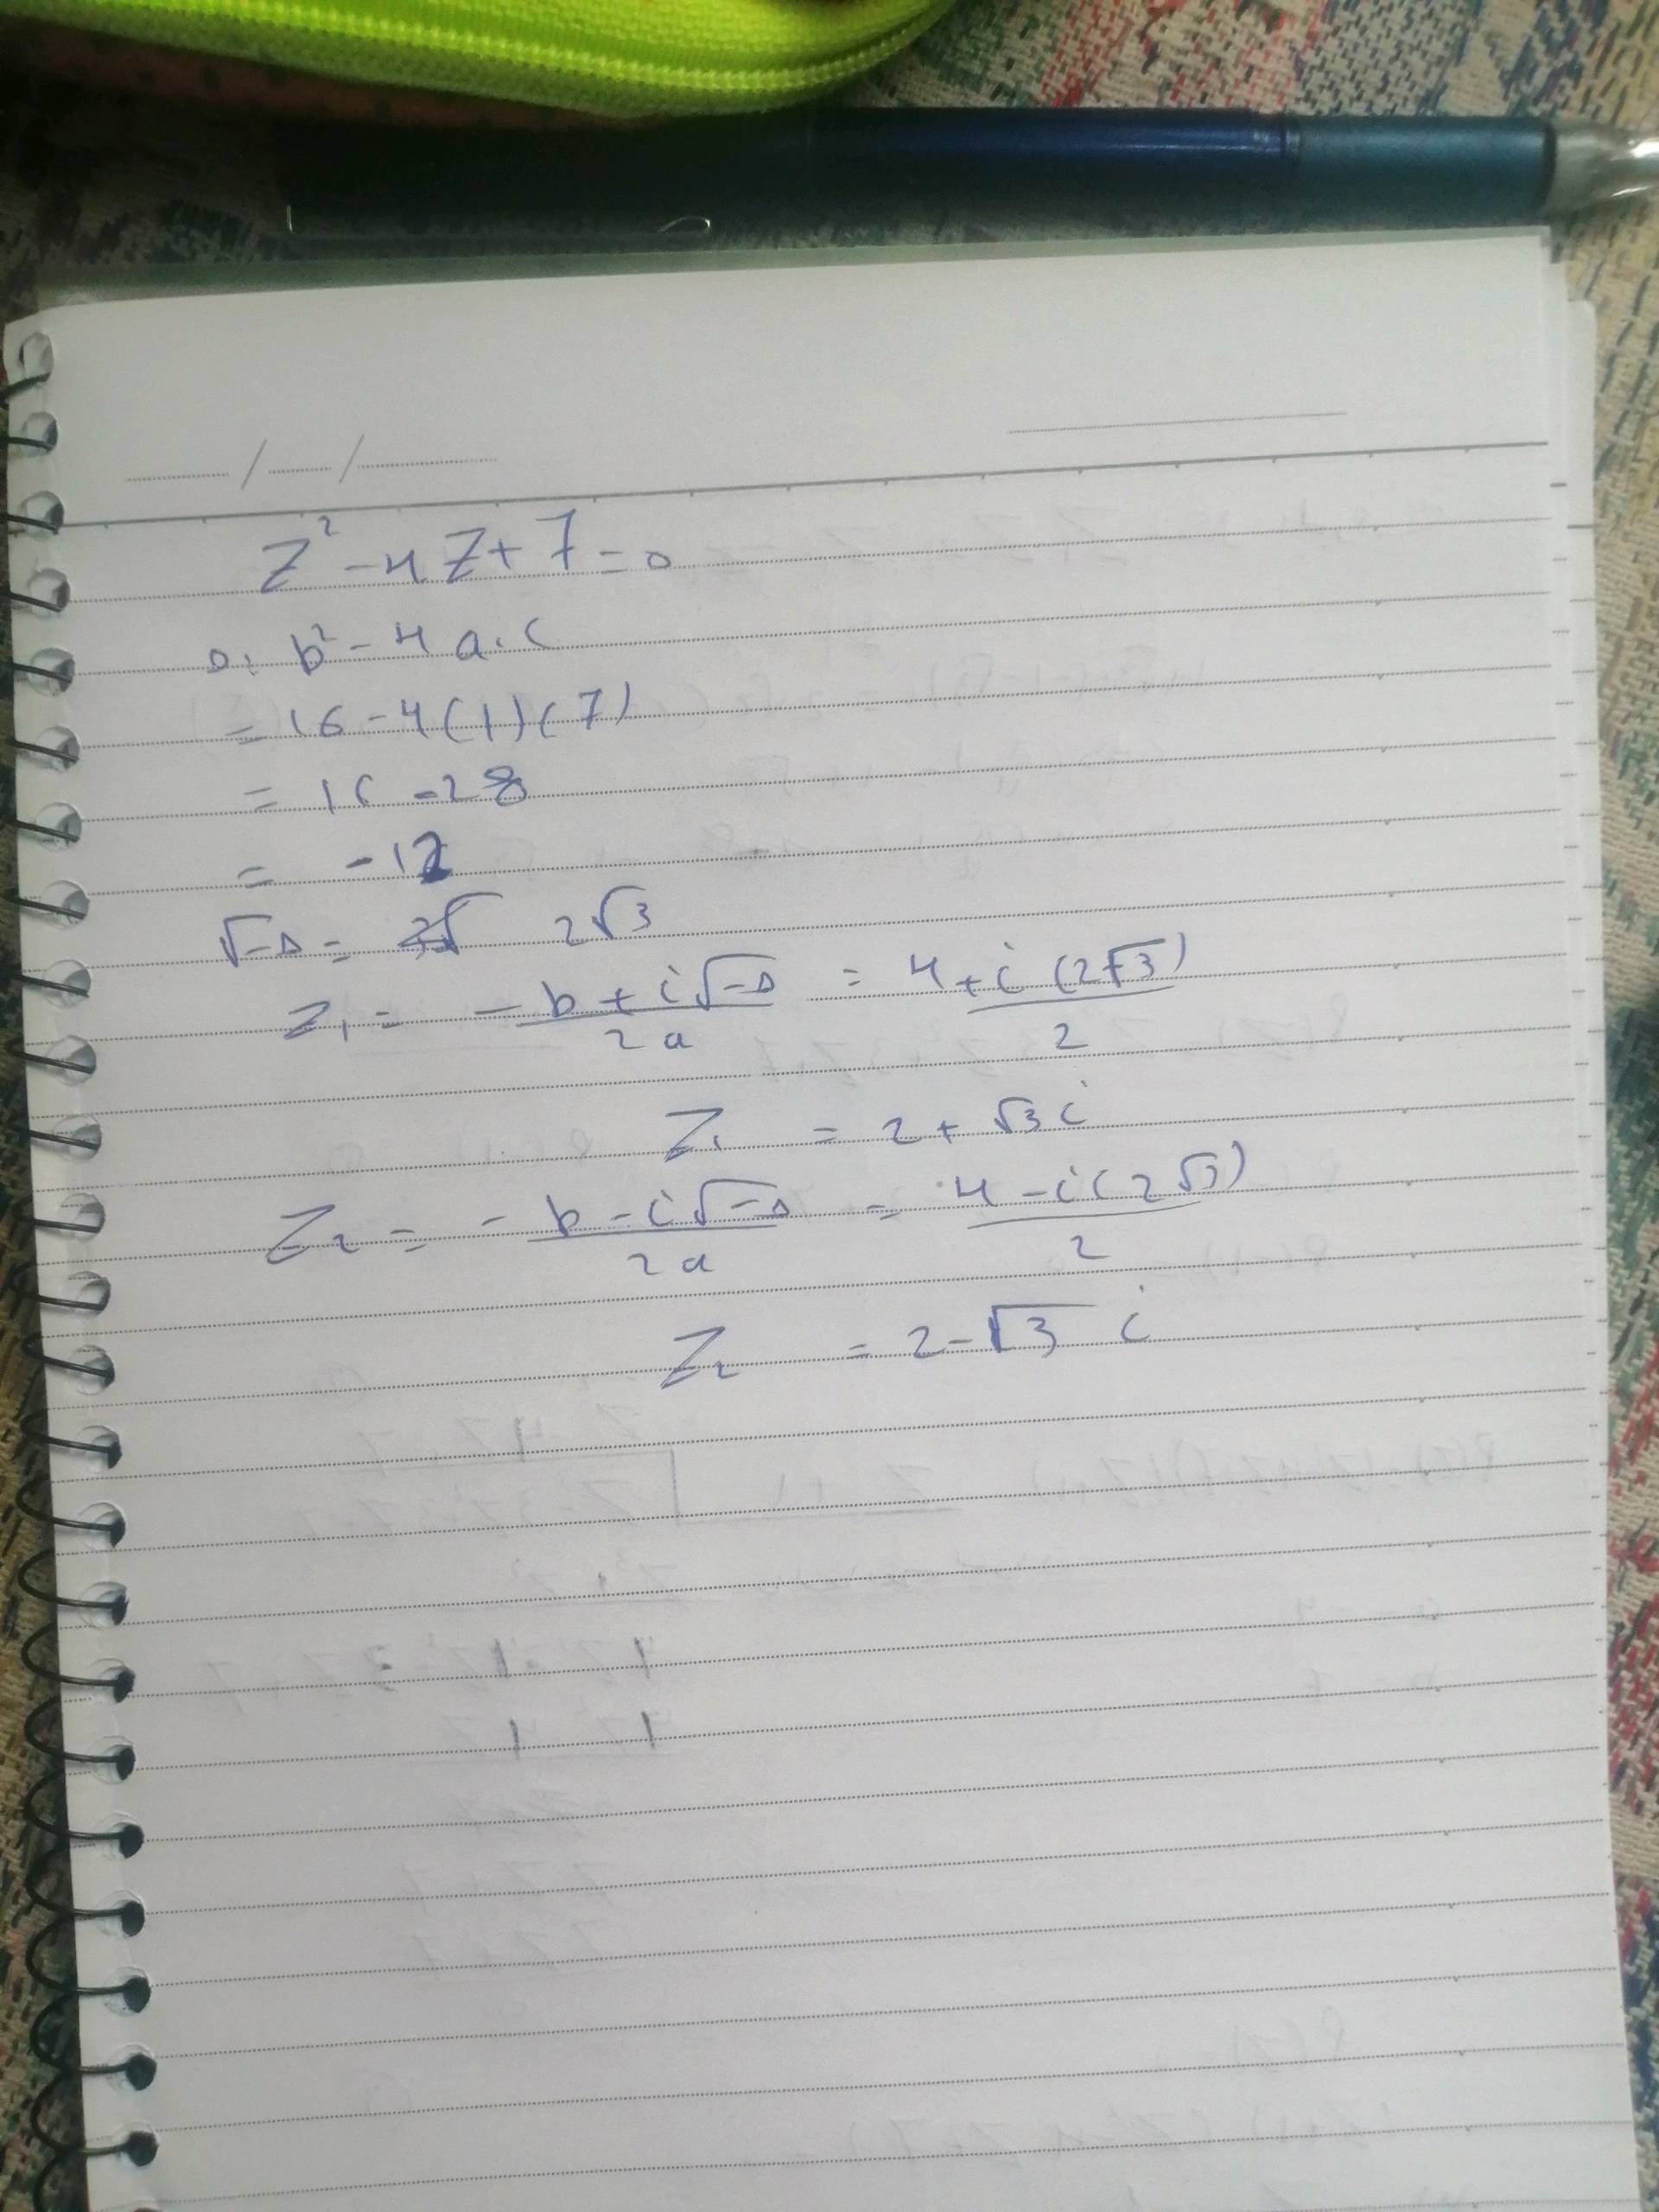 z² - 4z + 7 = 0
Δ: b² - 4a.c
= 16 - 4(1)(7)
= 16 - 28
= -12
√-Δ = 2√3
z₁ = (-b + i√-Δ)/2a = (4 + i(2√3))/2
z₁ = 2 + √3 i
z₂ = (-b - i√-Δ)/2a = (4 - i(2√3))/2
z₂ = 2 - √3 i